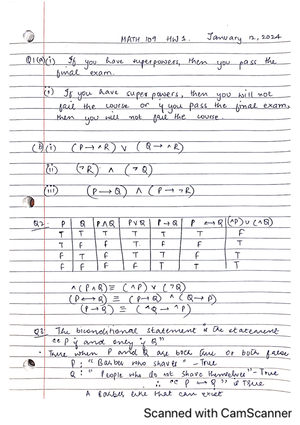 MATH 109 HW 1. January 12, 2024
Q1(a)(i) If you have superpowers, then you pass the
final exam.
(i) If you have super powers, then you will not
fail the course or if you pass the final exam,
then you will not fail the course.
(b)(i) (P→¬R) ∨ (Q→¬R)
(ii) (¬R) ∧ (¬Q)
(iii) (P→Q) ∧ (P→¬R)
Q2. P Q P∧Q P∨Q P→Q P↔Q (¬P)∪(¬Q)
T T T T T T F
T F F T F F T
F T F T T F T
F F F F T T T
¬(P∧Q) ≡ (¬P) ∨ (¬Q)
(P↔Q) ≡ (P→Q) ∧ (Q→P)
(P→Q) ≡ (¬Q→¬P)
Q3. The biconditional statement is the statement
"P if and only if Q"
• True when P and Q are both true or both false
P: "Barber who shaves" - True
Q: "People who do not shave themselves" - True
∴ "P ↔ Q" is True
A Barber like that can exist
Scanned with CamScanner